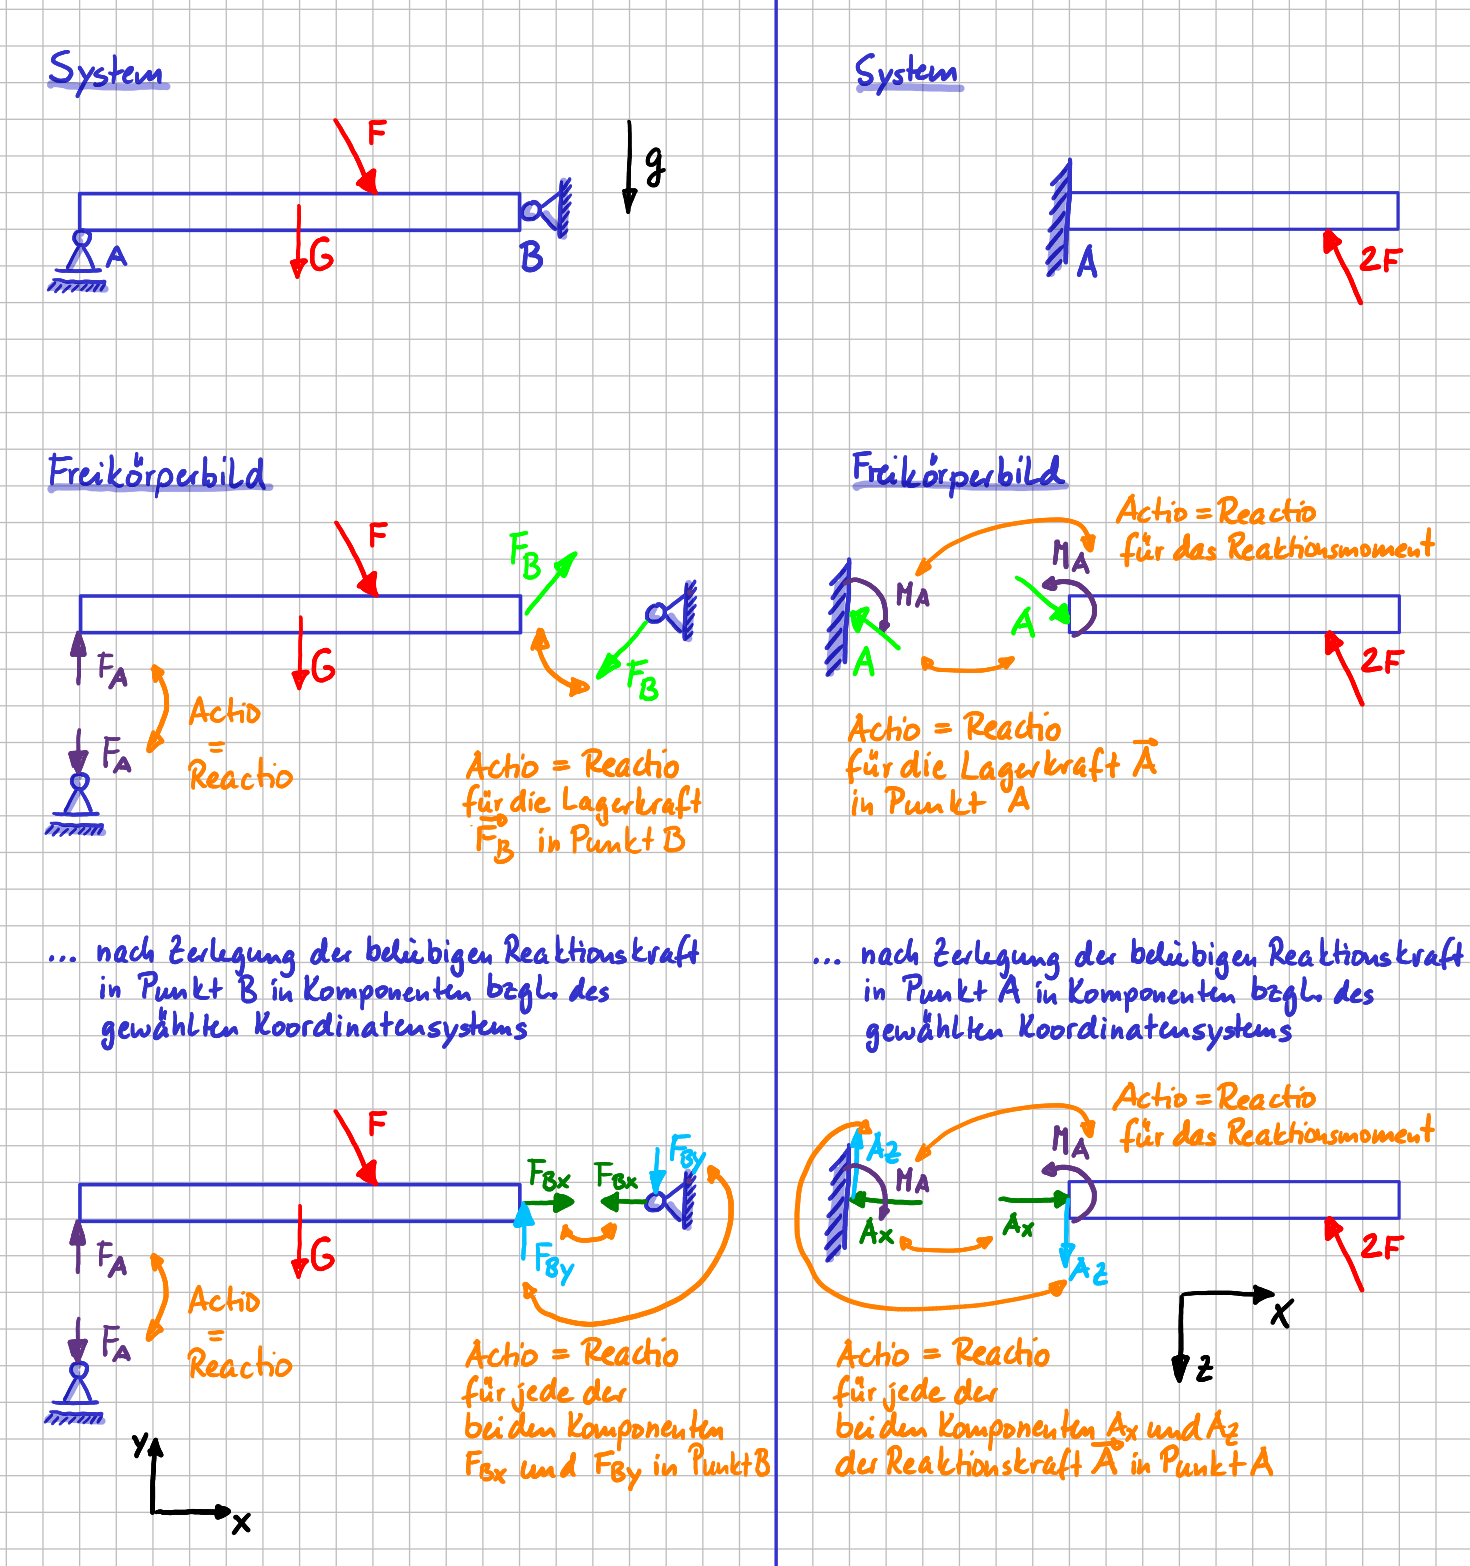 System
F
g
G
A
B
Freikörperbild
F
F_B
F_A
G
F_B
F_A
Actio
=
Reactio
Actio = Reactio
für die Lagerkraft
F_B in Punkt B
... nach Zerlegung der beliebigen Reaktionskraft
in Punkt B in Komponenten bzgl. des
gewählten Koordinatensystems
F
F_Bx
F_Bx
F_By
F_A
G
F_By
F_A
Actio
=
Reactio
Actio = Reactio
für jede der
beiden Komponenten
F_Bx und F_By in Punkt B
y
x
System
A
2F
Freikörperbild
Actio = Reactio
für das Reaktionsmoment
M_A
M_A
A
A
2F
Actio = Reactio
für die Lagerkraft A
in Punkt A
... nach Zerlegung der beliebigen Reaktionskraft
in Punkt A in Komponenten bzgl. des
gewählten Koordinatensystems
Actio = Reactio
für das Reaktionsmoment
A_z
M_A
M_A
A_x
A_x
A_z
2F
x
z
Actio = Reactio
für jede der
beiden Komponenten A_x und A_z
der Reaktionskraft A in Punkt A